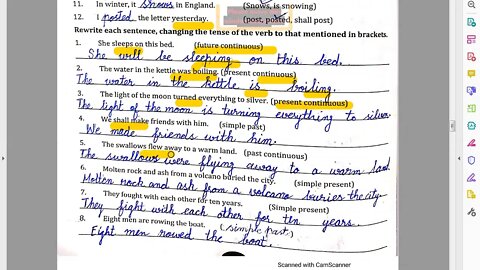 11. In winter, it snows in England. (Snows, is snowing)
12. I posted the letter yesterday. (post, posted, shall post)
Rewrite each sentence, changing the tense of the verb to that mentioned in brackets.
1. She sleeps on this bed. (future continuous)
She will be sleeping on this bed.
2. The water in the kettle was boiling. (present continuous)
The water in the kettle is boiling.
3. The light of the moon turned everything to silver. (present continuous)
The light of the moon is turning everything to silver.
4. We shall make friends with him. (simple past)
We made friends with him.
5. The swallows flew away to a warm land. (past continuous)
The swallows were flying away to a warm land
6. Molten rock and ash from a volcano buried the city. (simple present)
Molten rock and ash from a volcano buries the city.
7. They fought with each other for ten years. (Simple present)
They fight with each other for ten years.
8. Eight men are rowing the boat. (simple past)
Eight men rowed the boat.
Scanned with CamScanner